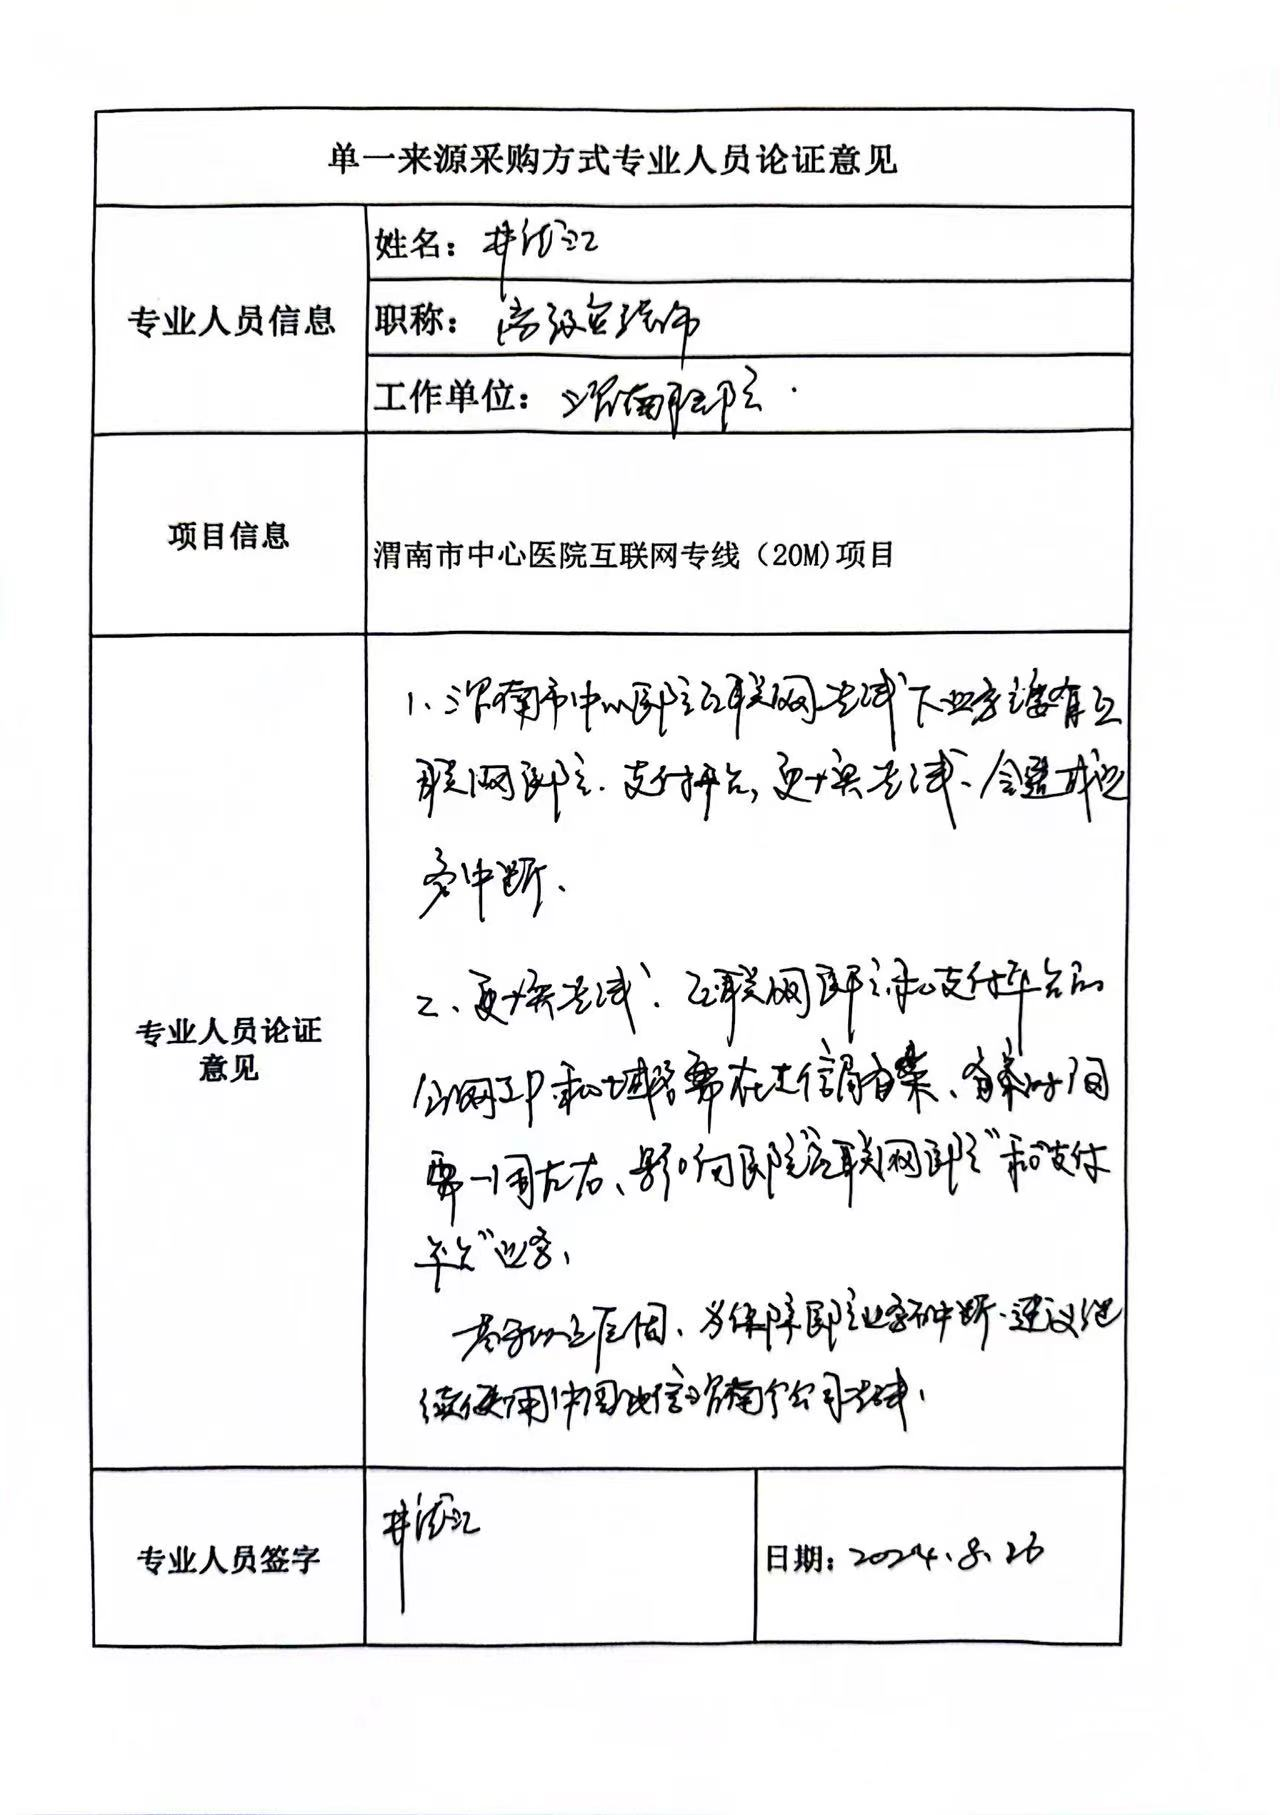 单一来源采购方式专业人员论证意见
专业人员信息
姓名：井
职称：高级实验师
工作单位：渭南职院
项目信息
渭南市中心医院互联网专线（20M)项目
专业人员论证
意见
1、渭南市中心医院互联网专线下业务主要有互
联网医院、支付平台，更换专线、会造成业
务中断、
2、更换专线、互联网医院和支付平台的
公网IP和域名要在通信局备案、备案时间
要一周左右、影响医院“互联网医院”和“支付
平台”业务、
基于以上原因、为保障医院业务不中断、建议继
续使用中国电信渭南分公司专线、
专业人员签字
井
日期：2024.8.26